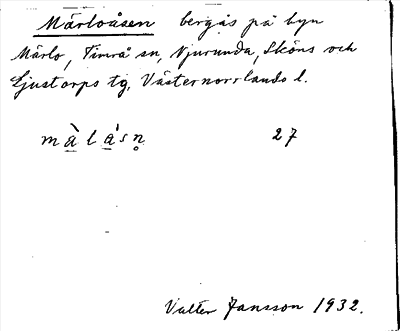 Märloåsen bergås på byn
Märlo, Timrå sn, Njurunda, Sköns och
Ljustorps tg, Västernorrlands l.
màlásn̥ 27
Valter Jansson 1932.